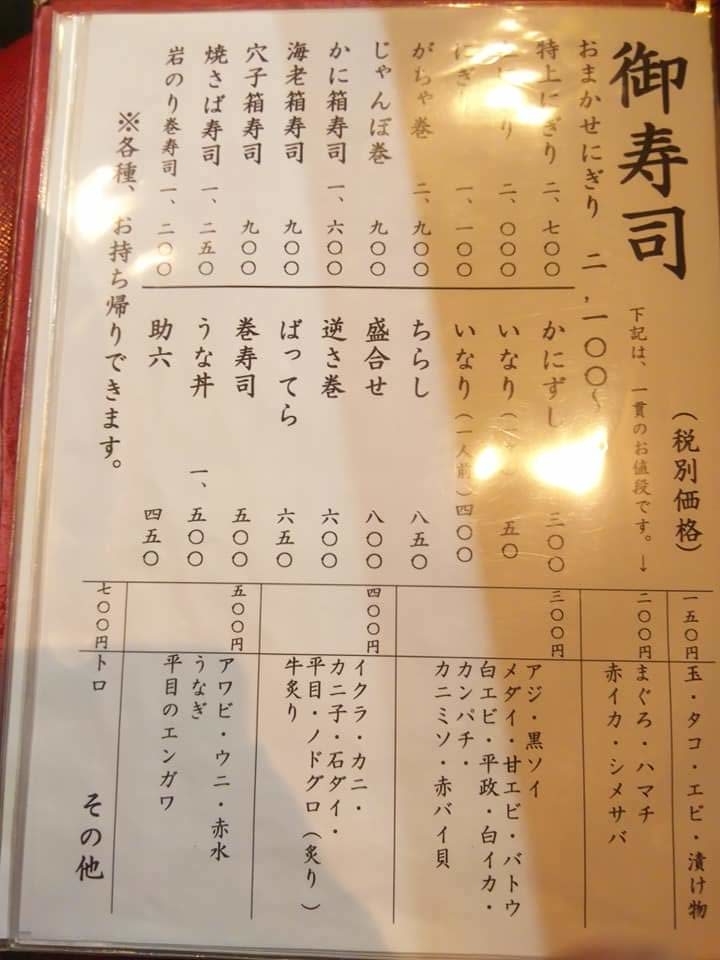 御寿司
（税別価格）
おまかせにぎり 二,一〇〇〜
下記は、一貫のお値段です。↓
特上にぎり 二、七〇〇
り 二、〇〇〇
にぎ 一、一〇〇
がちゃ巻 二、九〇〇
じゃんぼ巻 九〇〇
かに箱寿司 一、六〇〇
海老箱寿司 九〇〇
穴子箱寿司 九〇〇
焼さば寿司 一、二五〇
岩のり巻寿司 一、二〇〇
かにずし 三〇〇
いなり 五〇
いなり（一人前）四〇〇
ちらし 八五〇
盛合せ 八〇〇
逆さ巻 六〇〇
ばってら 六五〇
巻寿司 五〇〇
うな丼 一、五〇〇
助六 四五〇
※各種、お持ち帰りできます。
一五〇円
玉・タコ・エビ・漬け物
二〇〇円
まぐろ・ハマチ
赤イカ・シメサバ
三〇〇円
アジ・黒ソイ
メダイ・甘エビ・バトウ
白エビ・平政・白イカ・
カンパチ・
カニミソ・赤バイ貝
四〇〇円
イクラ・カニ・
カニ子・石ダイ・
平目・ノドグロ（炙り）
牛炙り
五〇〇円
アワビ・ウニ・赤水
うなぎ
平目のエンガワ
七〇〇円
トロ
その他